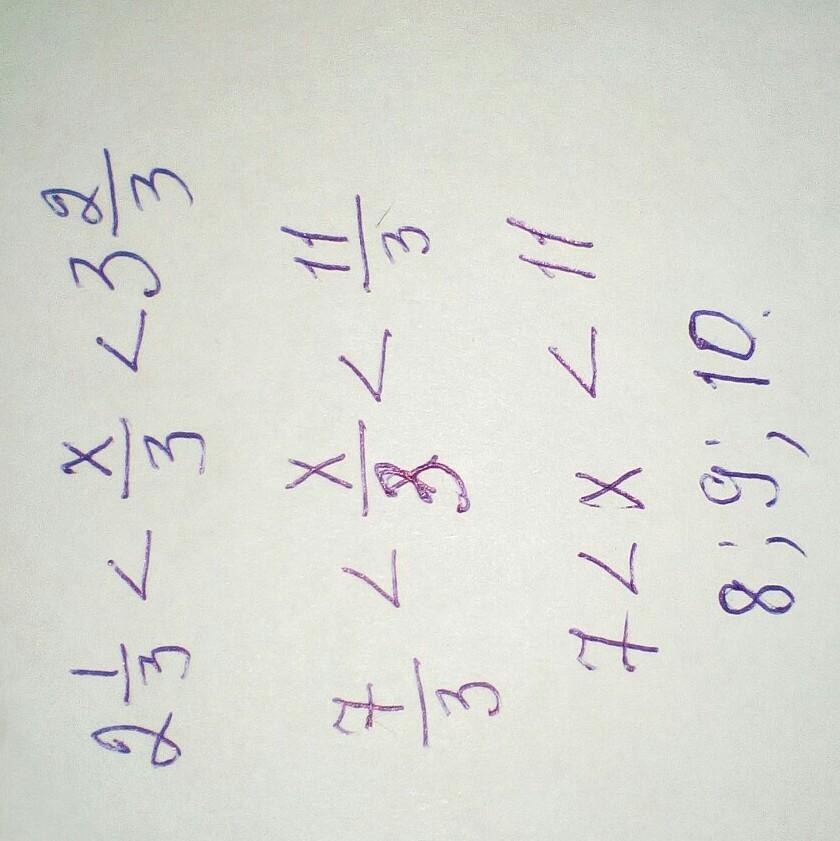 2 1/3 < x/3 < 3 2/3
7/3 < x/3 < 11/3
7 < x < 11
8; 9; 10.